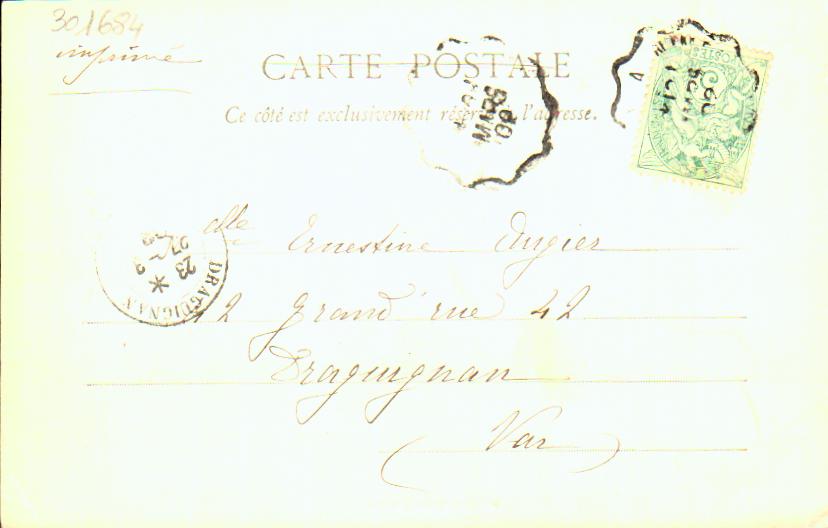 301684
imprimé
CARTE POSTALE
Ce côté est exclusivement réservé à l'adresse.
POSTES
Mlle Ernestine Augier
42 Grand'rue 42
Draguignan
(Var)
DRAGUIGNAN
23